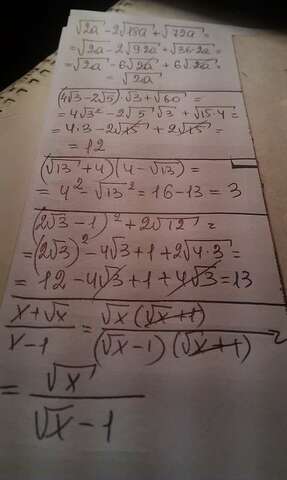 √2a - 2√18a + √72a =
= √2a - 2√9·2a + √36·2a =
= √2a - 6√2a + 6√2a =
= √2a
(4√3 - 2√5)·√3 + √60 =
= 4√3² - 2√5·√3 + √15·4 =
= 4·3 - 2√15 + 2√15 =
= 12
(√13 + 4)(4 - √13) =
= 4² - √13² = 16 - 13 = 3
(2√3 - 1)² + 2√12 =
= (2√3)² - 4√3 + 1 + 2√4·3 =
= 12 - 4√3 + 1 + 4√3 = 13
(x + √x)/(x - 1) = √x(√x + 1)/((√x - 1)(√x + 1)) =
= √x/(√x - 1)